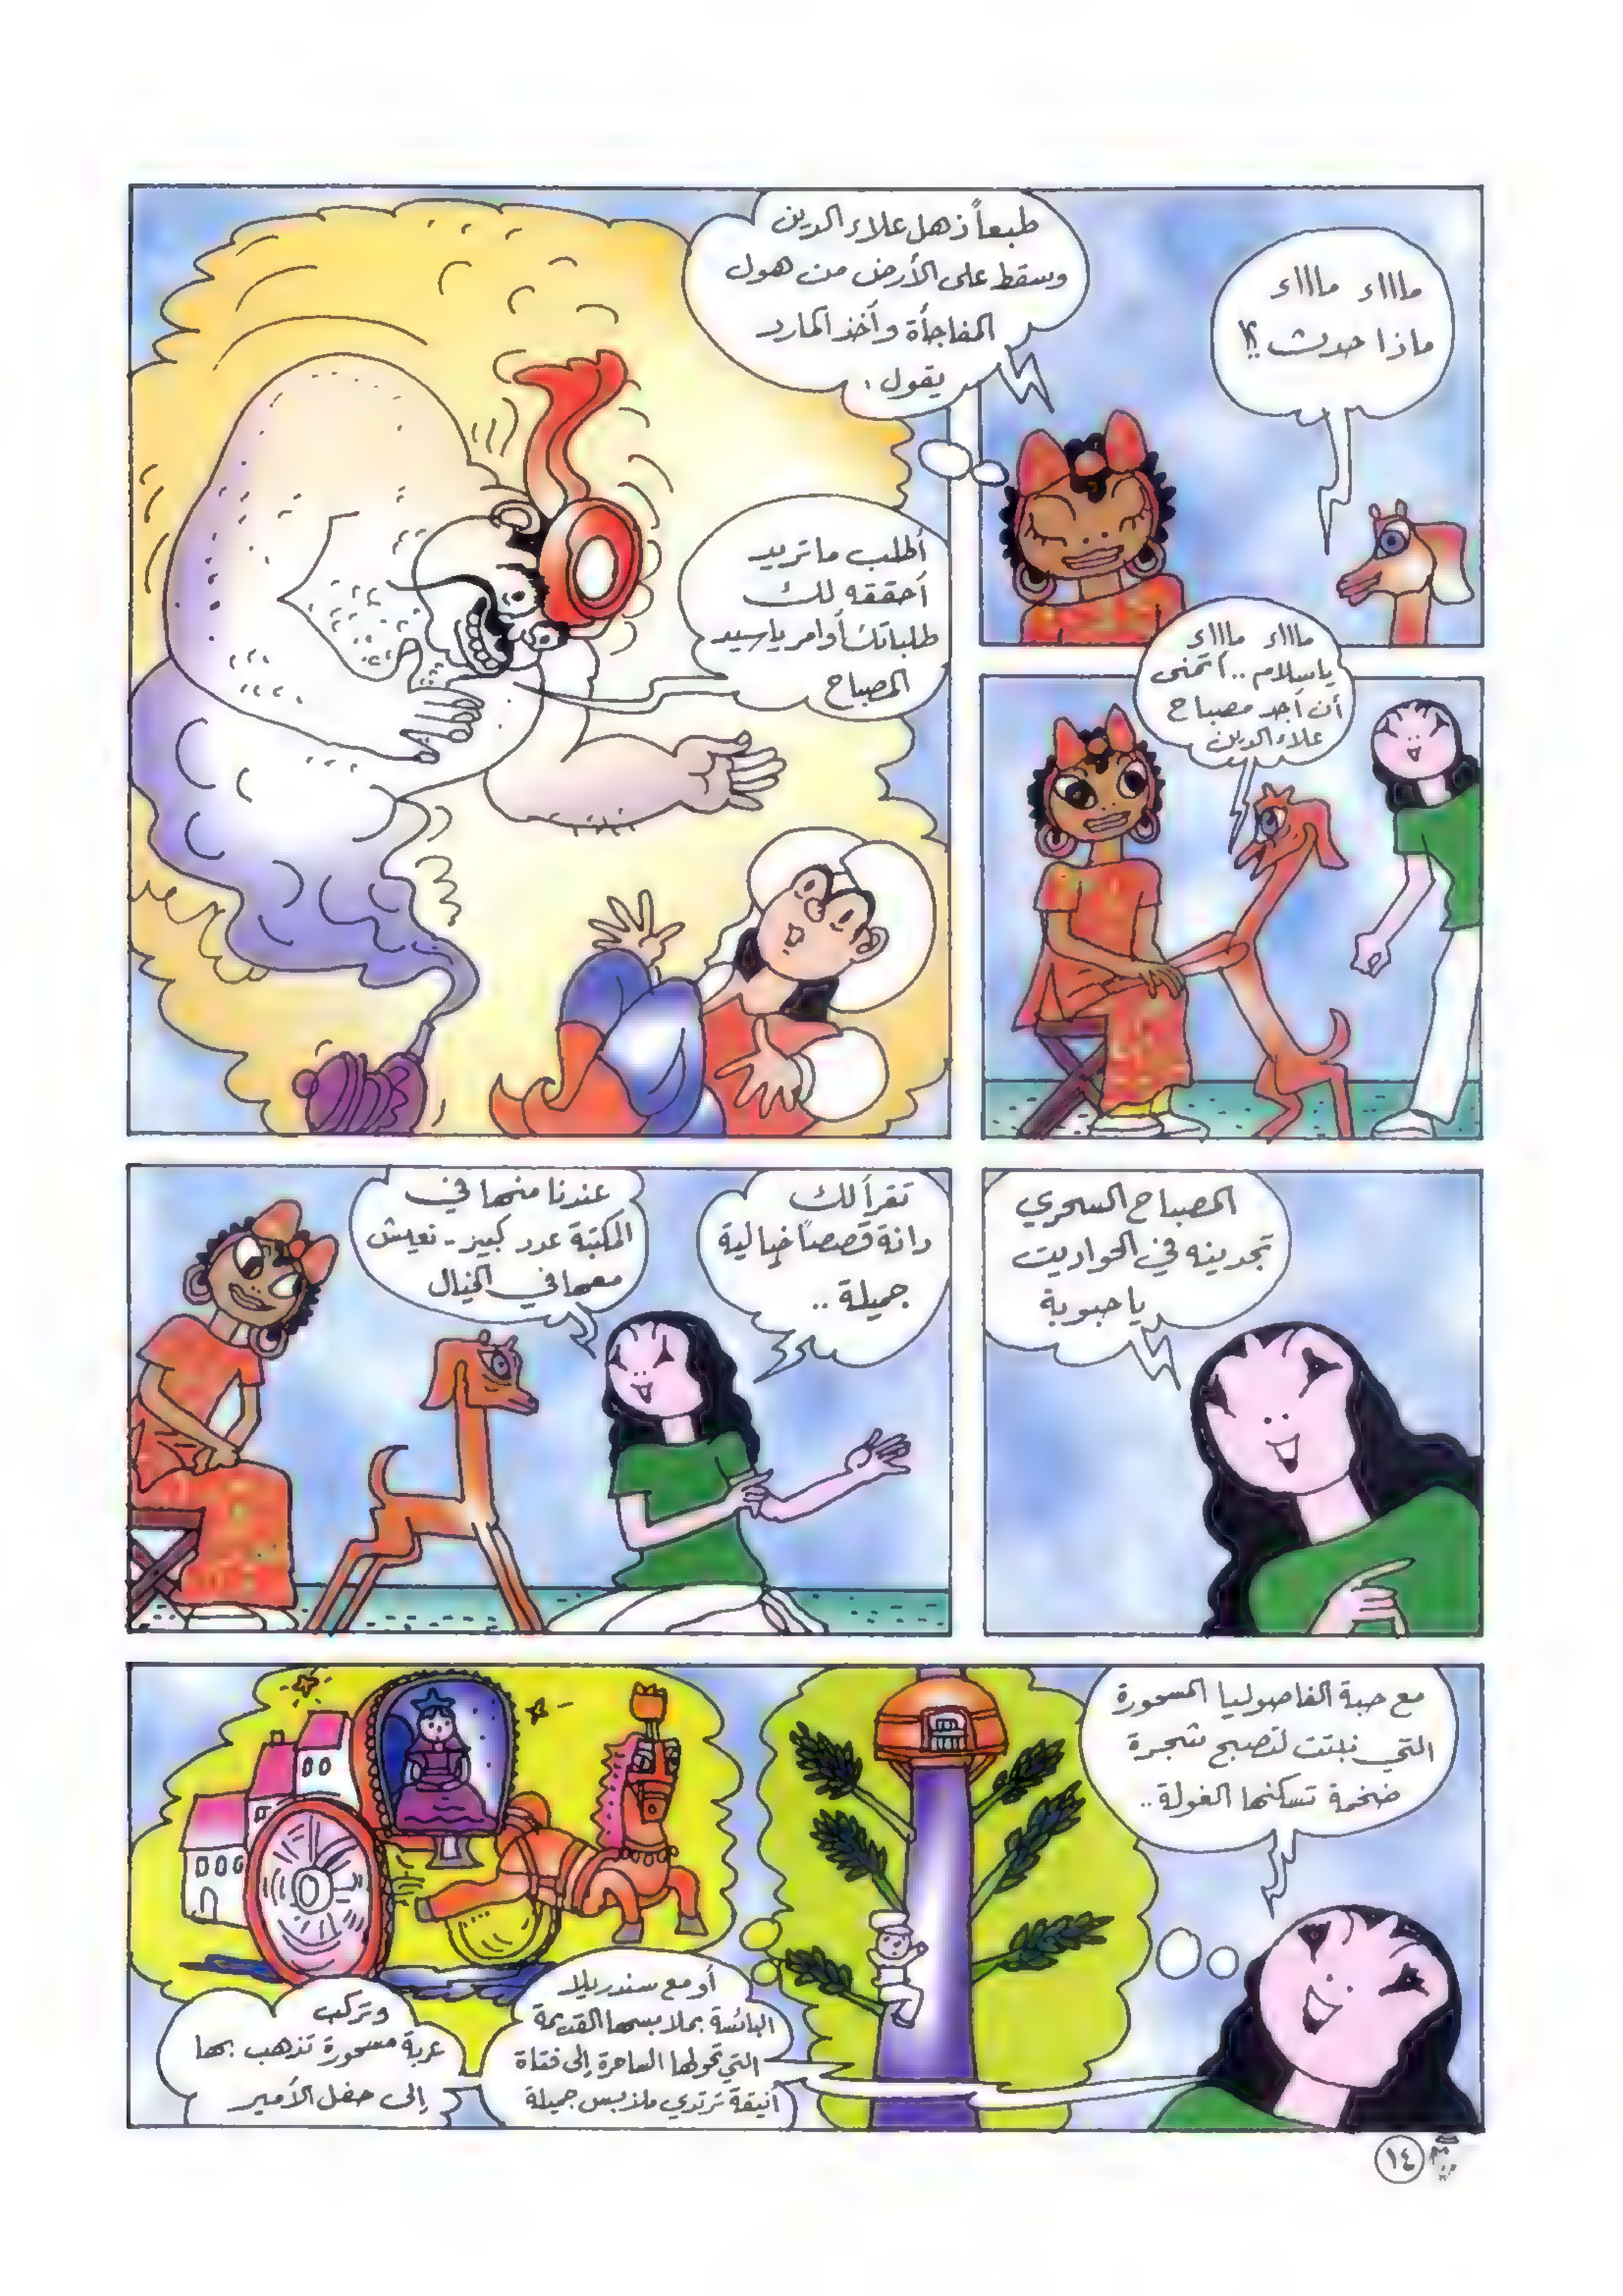 مااااء مااااء
ماذا حدث ؟!
طبعاً ذهل علاء الدين
وسقط على الأرض من هول
المفاجأة وأخذ المارد
يقول :
أطلب ما تريد
أحققه لك
طلباتك أوامر يا سيد
المصباح
مااااء مااااء
ياسلام .. أتمنى
أن أجد مصباح
علاء الدين
المصباح السحري
تجدينه في الحواديت
يا حبوبة
تقرأ لك
دانة قصصاً خيالية
جميلة ..
عندنا منها في
المكتبة عدد كبير .. نعيش
معها في الخيال
مع حبة الفاصوليا المسحورة
التي نبتت لتصبح شجرة
ضخمة تسكنها الغولة ..
أو مع سندريلا
البائسة بملابسها القديمة
التي تحولها الساحرة إلى فتاة
أنيقة ترتدي ملابس جميلة
وتركب
عربة مسحورة تذهب بها
إلى حفل الأمير
١٤